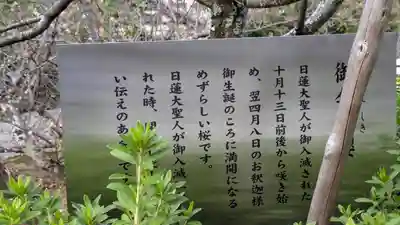 御
日蓮大聖人が御入滅された
十月十三日前後から咲き始
め、翌四月八日のお釈迦様
御生誕のころに満開になる
めずらしい桜です。
日蓮大聖人が御入滅
れた時、
い伝えのあ